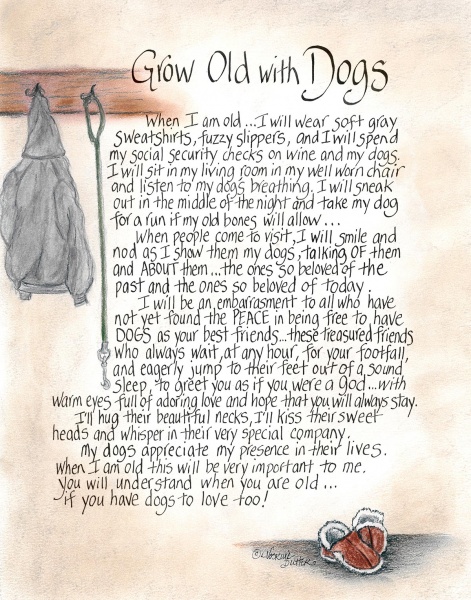 Grow Old with Dogs
When I am old...I will wear soft gray
sweatshirts, fuzzy slippers, and I will spend
my social security checks on wine and my dogs.
I will sit in my living room in my well worn chair
and listen to my dogs breathing. I will sneak
out in the middle of the night and take my dog
for a run if my old bones will allow...
When people come to visit, I will smile and
nod as I show them my dogs, talking OF them
and ABOUT them...the ones so beloved of the
past and the ones so beloved of today.
I will be an embarrasment to all who have
not yet found the PEACE in being free to have
DOGS as your best friends...these treasured friends
who always wait, at any hour, for your footfall,
and eagerly jump to their feet out of a sound
sleep, to greet you as if you were a God...with
warm eyes full of adoring love and hope that you will always stay.
I'll hug their beautiful necks, I'll kiss their sweet
heads and whisper in their very special company.
My dogs appreciate my presence in their lives.
When I am old this will be very important to me.
You will understand when you are old...
if you have dogs to love too!